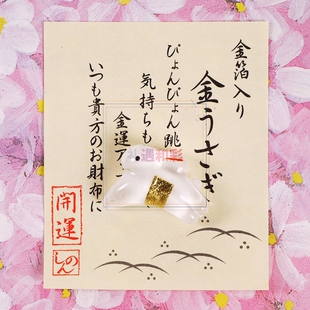 金箔入り
金うさぎ
ぴょんぴょん跳
気持ちも
金運ア
いつも貴方のお財布に
開運
しのん